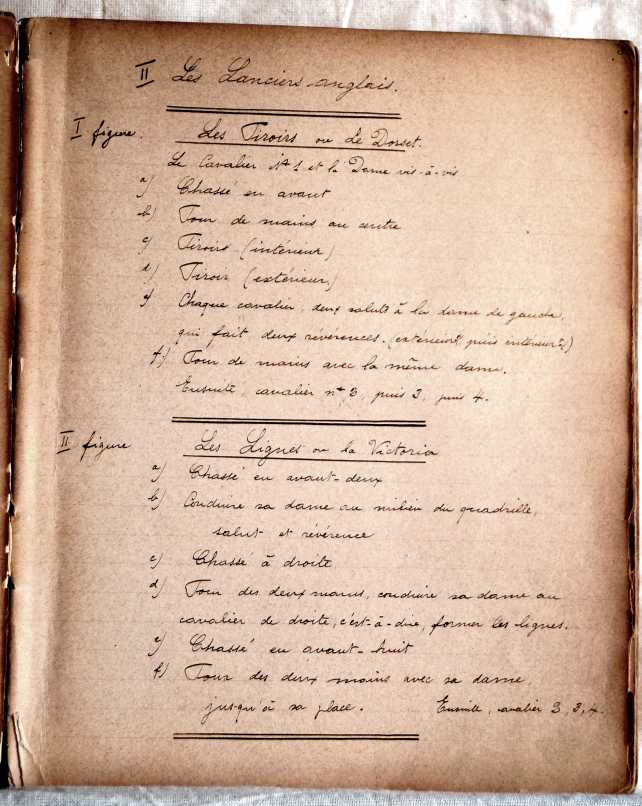 II Les Lanciers anglais.
I figure. Les Tiroirs ou Le Dorset.
Le Cavalier No 1 et la Dame vis-à-vis
a) Chassé en avant
b) Tour de mains au centre
c) Tiroirs (intérieur)
d) Tiroir (extérieur)
e) Chaque cavalier, deux saluts à la dame de gauche,
qui fait deux révérences. (extérieurt puis intérieurt)
f) Tour de mains avec la même dame.
Ensuite, cavalier no 3, puis 3, puis 4.
II figure Les Lignes ou la Victoria
a) Chassé en avant-deux
b) Conduire sa dame au milieu du quadrille,
salut et révérence
c) Chassé à droite
d) Tour des deux mains, conduire sa dame au
cavalier de droite, c'est-à-dire, former les lignes.
e) Chassé en avant-huit
f) Tour des deux mains avec sa dame,
jusqu'à sa place. Ensuite, cavalier 3, 3, 4.